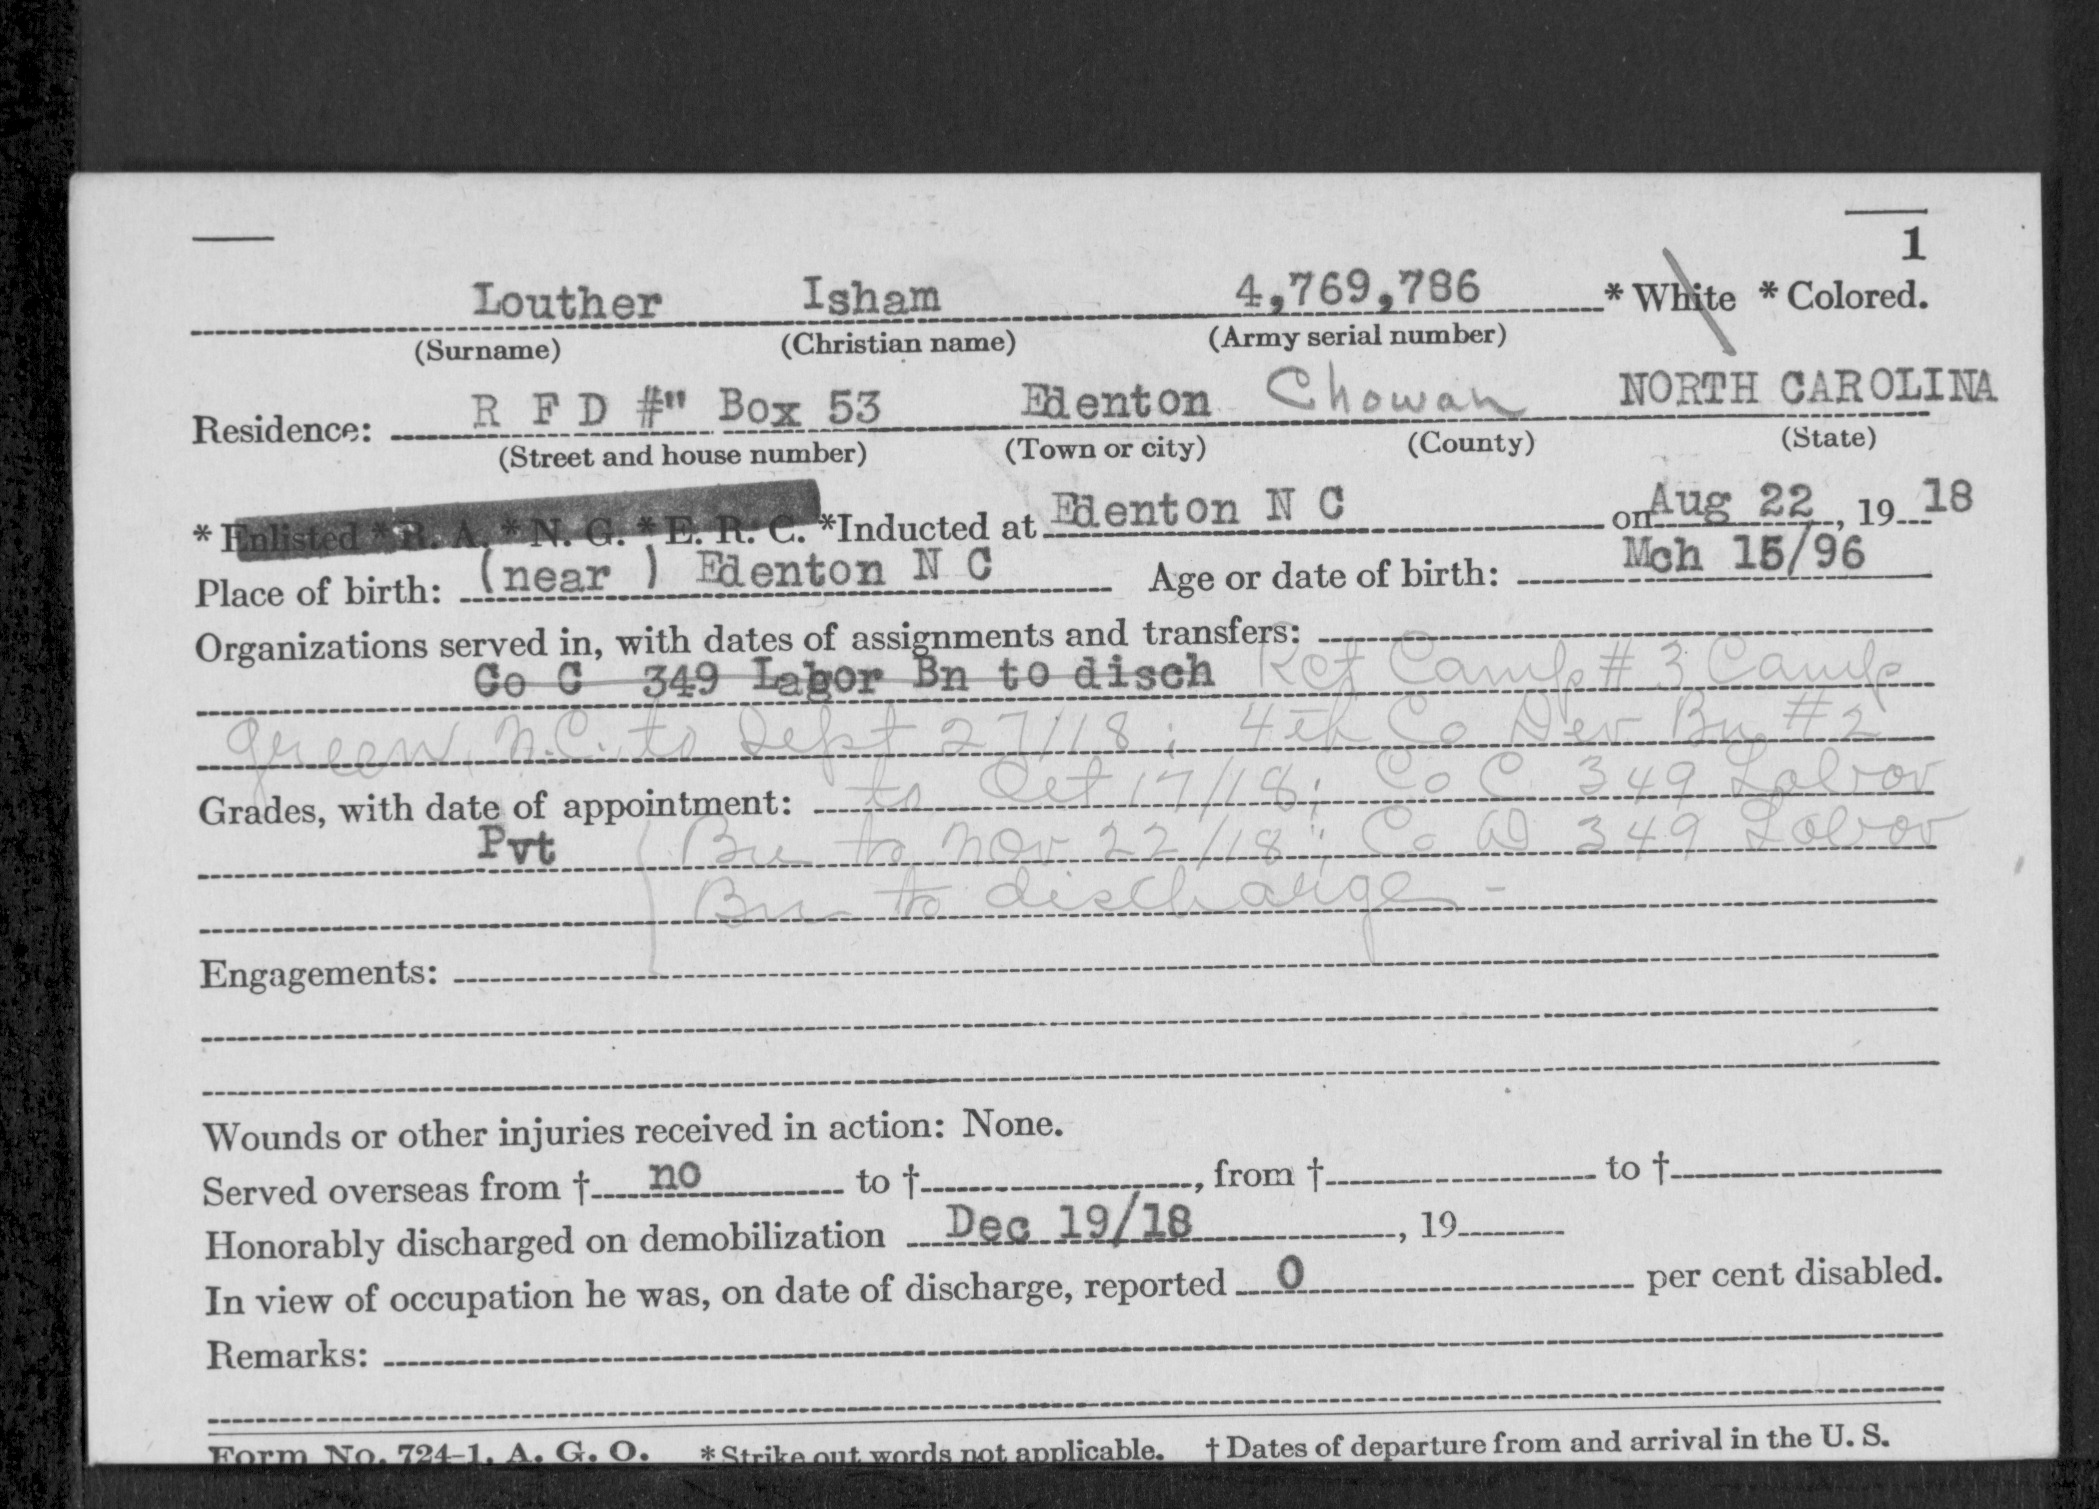 1
Louther Isham 4,769,786 * White * Colored.
(Surname) (Christian name) (Army serial number)
Residence: R F D #" Box 53 Edenton Chowan NORTH CAROLINA
(Street and house number) (Town or city) (County) (State)
* Enlisted * R. A. * N. G. * E. R. C. *Inducted at Edenton N C on Aug 22, 19 18
Place of birth: (near ) Edenton N C Age or date of birth: Mch 15/96
Organizations served in, with dates of assignments and transfers:
Co C 349 Labor Bn to disch Rct Camp # 3 Camp
Green, N.C. to Sept 27/18; 4th Co Dev Bn #2
Grades, with date of appointment: to Oct 17/18; Co C 349 Labor
Pvt Bn to Nov 22/18; Co D 349 Labor
Bn to discharge -
Engagements:
Wounds or other injuries received in action: None.
Served overseas from † no to †, from † to †
Honorably discharged on demobilization Dec 19/18, 19
In view of occupation he was, on date of discharge, reported 0 per cent disabled.
Remarks:
Form No. 724-1, A. G. O. * Strike out words not applicable. † Dates of departure from and arrival in the U. S.